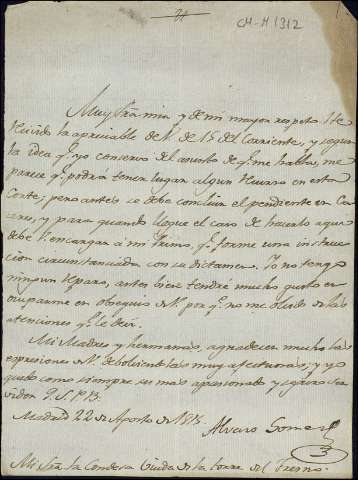 21
CM-H 1312
Muy Sra mia y de mi mayor respeto. He
recivido la apreciable de V. de 15 del Corriente, y segun
la idea qe. yo conservo del asunto de qe. me habla, me
parece qe. podrá tener lugar algun recurso en esta
Corte; pero antes se debe concluir el pendiente en Ca-
ceres, y para quando llegue el caso de hacerlo aqui
debe V. encargar a mi Primo, qe. forme una instruc-
cion circunstanciada con su dictamen. Yo no tengo
ningun reparo, antes bien tendré mucho gusto en
ocuparme en obsequio de V. por qe. no me olvido de las
atenciones qe. le deví.
Mi Madre y hermanas, agradecen mucho las
expresiones de V. debolviendoselas muy afectuosas; y yo
quedo como siempre su mas apasionado y seguro ser-
vidor Q. S. P. B.
Madrid 22 de Agosto de 1815.
Alvaro Gomez
Mi Sra. la Condesa Viuda de la torre del Fresno.